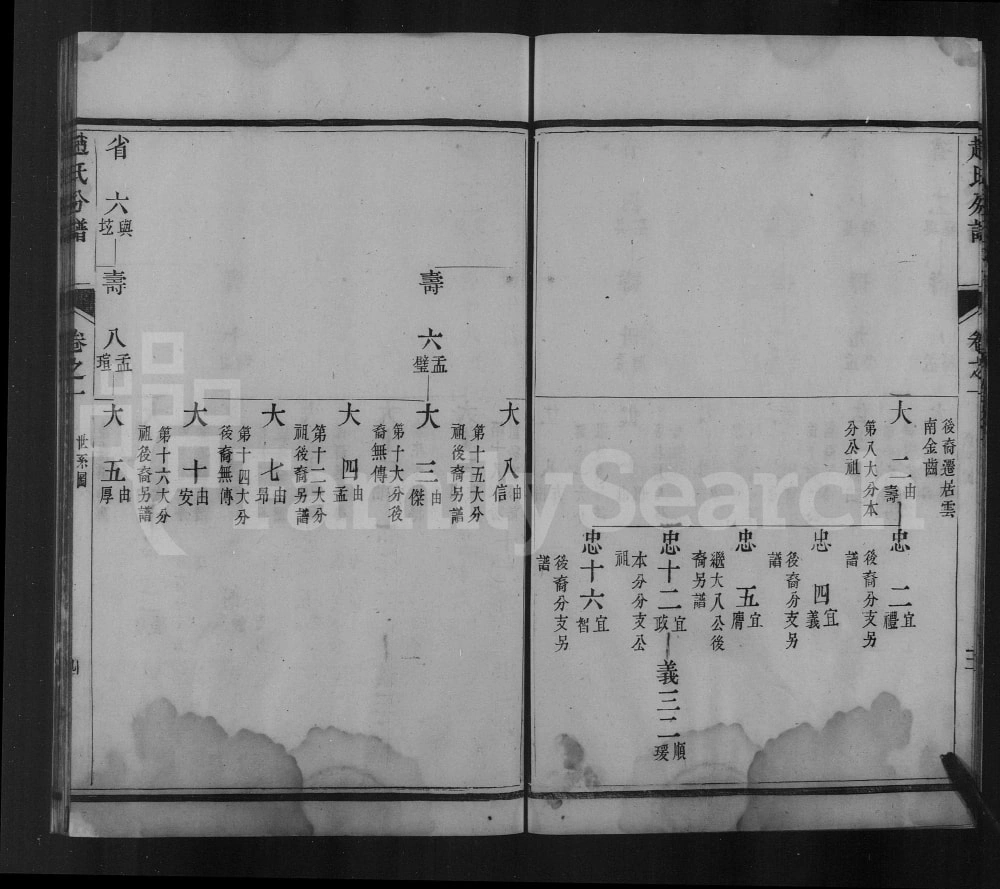 趙氏分譜
卷之一
三
後裔遷居雲
南金齒
大二 由壽
第八大分本
分公祖
忠二 宜禮
後裔分支另
譜
忠四 宜義
後裔分支另
譜
忠五 宜膺
繼大八公後
裔另譜
忠十二 宜政
本分分支公
祖
義三二 順瑗
忠十六 宜智
後裔分支另
譜
大八 由信
第十五大分
祖後裔另譜
壽六 孟璧
大三 由傑
第十大分後
裔無傳
大四 由孟
第十二大分
祖後裔另譜
大七 由昂
第十四大分
後裔無傳
大十 由安
第十六大分
祖後裔另譜
省六 與
壽八 孟瑄
大五 由厚
趙氏分譜
卷之一
世系圖
四
FamilySearch